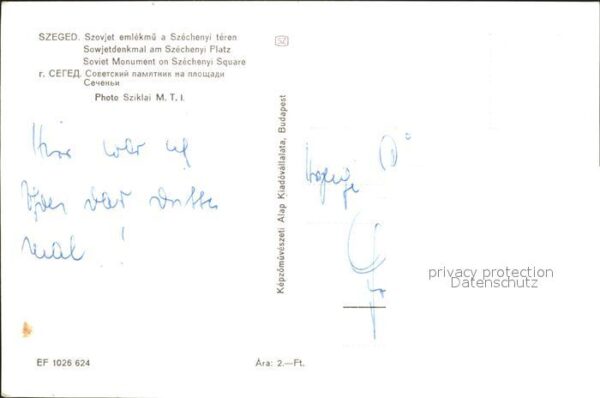 SZEGED. Szovjet emlékmű a Széchenyi téren
Sowjetdenkmal am Széchenyi Platz
Soviet Monument on Széchenyi Square
г. СЕГЕД. Советский памятник на площади
Сеченьи
Photo Sziklai M. T. I.
Hier war ich
mal !
Képzőművészeti Alap Kiadóvállalata, Budapest
privacy protection
Datenschutz
EF 1026 624
Ára: 2.—Ft.